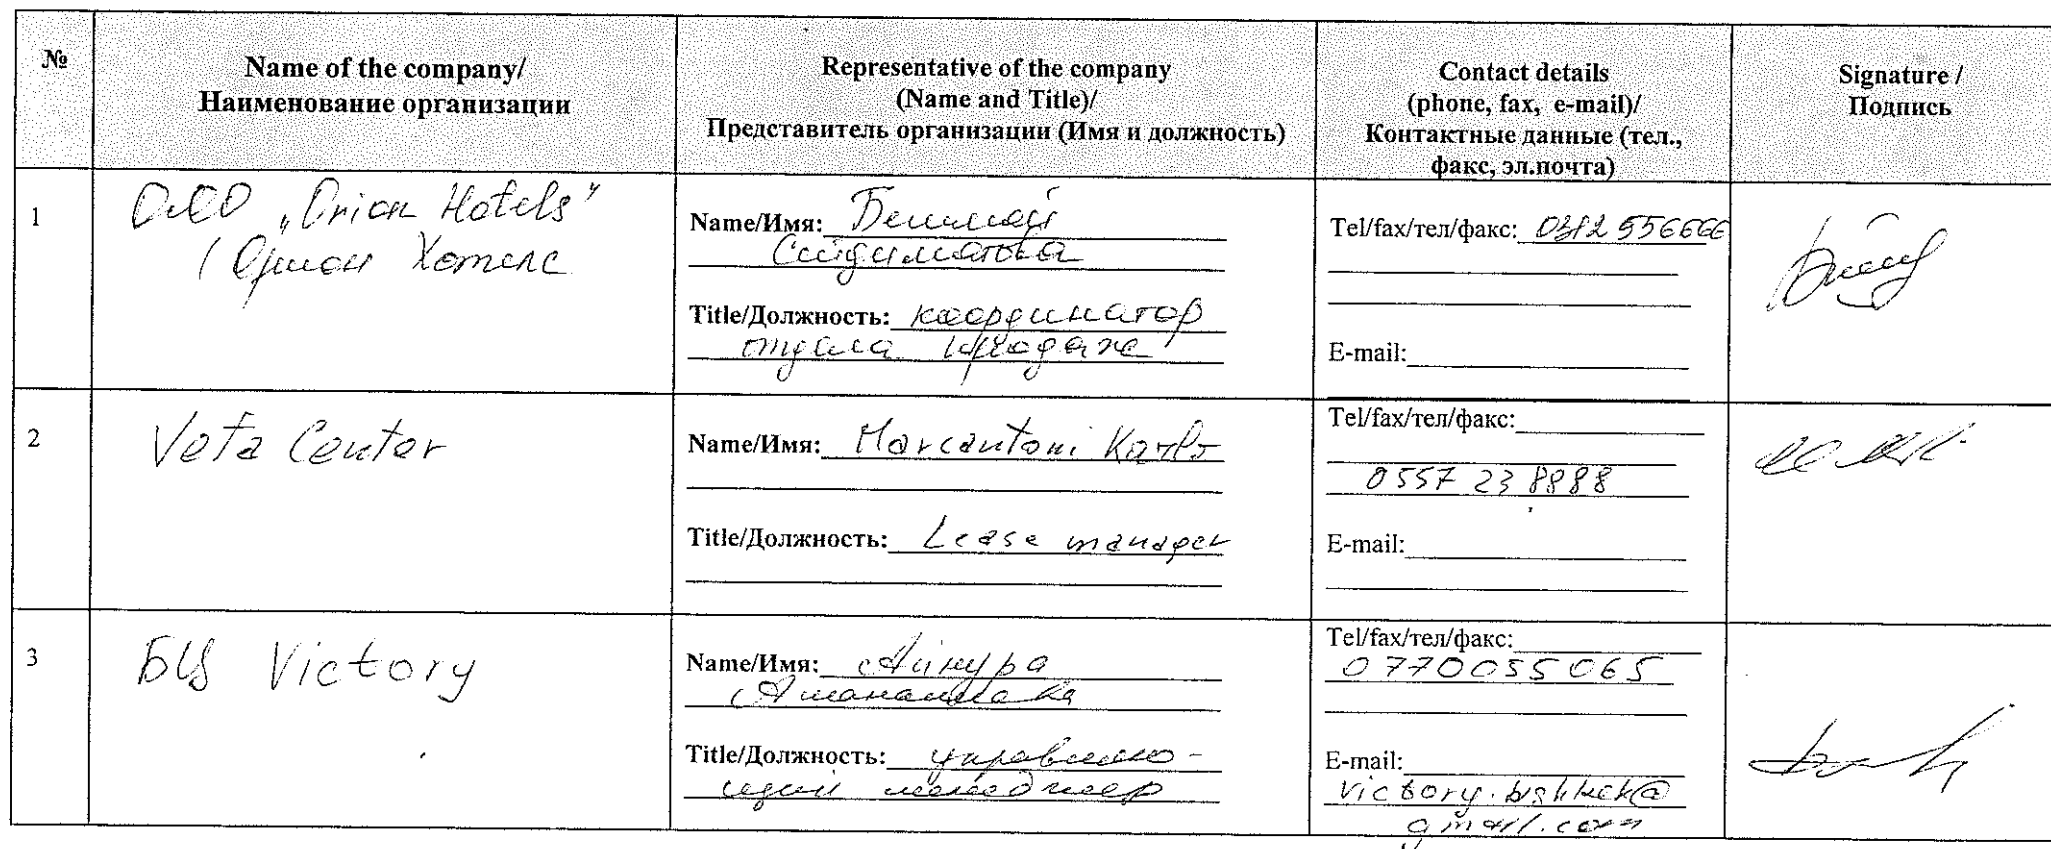 №
Name of the company/
Наименование организации
Representative of the company
(Name and Title)/
Представитель организации (Имя и должность)
Contact details
(phone, fax, e-mail)/
Контактные данные (тел.,
факс, эл.почта)
Signature /
Подпись
1
ОсОО „Orion Hotels"
(Орион Хотелс
Name/Имя:
Title/Должность: координатор
отдела продаж
Tel/fax/тел/факс: 0312 556666
E-mail:
2
Vefa Center
Name/Имя: Marcantoni
Title/Должность: Lease manager
Tel/fax/тел/факс:
0557 23 8988
E-mail:
3
БЦ Victory
Name/Имя: Айнура
Title/Должность: управляю-
щий менеджер
Tel/fax/тел/факс:
0770055065
E-mail:
victory.bishkek@
gmail.com